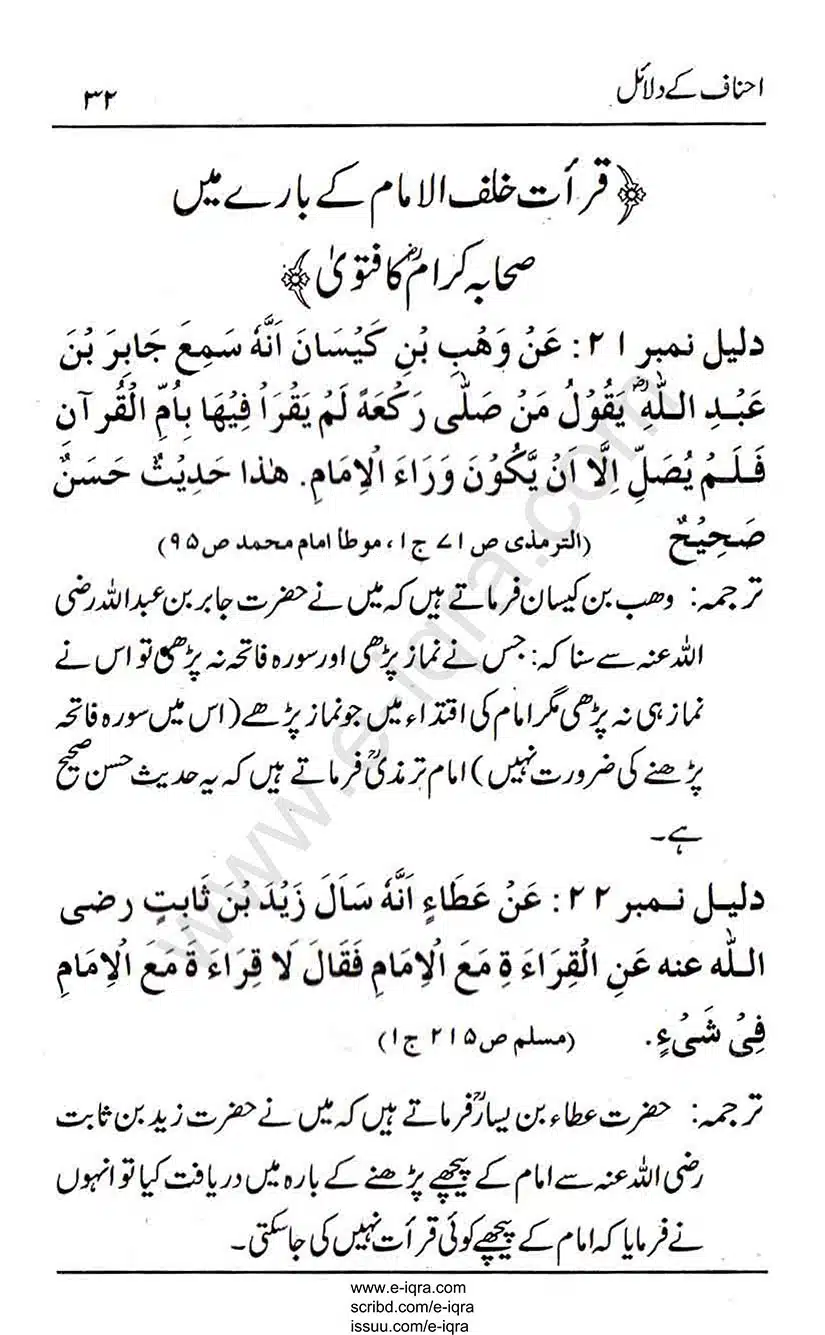 احناف کے دلائل
۳۲
﴿قرأت خلف الامام کے بارے میں
صحابہ کرامؓ کا فتویٰ﴾
دلیل نمبر ۲۱: عَنْ وَهْبِ بْنِ كَيْسَانَ اَنَّهٗ سَمِعَ جَابِرَ بْنَ
عَبْدِ اللّٰهِؓ يَقُوْلُ مَنْ صَلّٰى رَكْعَةً لَمْ يَقْرَاْ فِيْهَا بِاُمِّ الْقُرْآنِ
فَلَمْ يُصَلِّ اِلَّا اَنْ يَّكُوْنَ وَرَاءَ الْاِمَامِ. هٰذا حَدِيْثٌ حَسَنٌ
صَحِيْحٌ (الترمذی ص ۷۱ ج۱، موطأ امام محمد ص ۹۵)
ترجمہ: وھب بن کیسان فرماتے ہیں کہ میں نے حضرت جابر بن عبداللہ رضی
اللہ عنہ سے سنا کہ: جس نے نماز پڑھی اور سورہ فاتحہ نہ پڑھی تو اس نے
نماز ہی نہ پڑھی مگر امام کی اقتداء میں جو نماز پڑھے (اس میں سورہ فاتحہ
پڑھنے کی ضرورت نہیں) امام ترمذیؒ فرماتے ہیں کہ یہ حدیث حسن صحیح
ہے۔
دلیل نمبر ۲۲: عَنْ عَطَاءٍ اَنَّهٗ سَاَلَ زَيْدَ بْنَ ثَابِتٍ رضی
الله عنه عَنِ الْقِرَاءَةِ مَعَ الْاِمَامِ فَقَالَ لَا قِرَاءَةَ مَعَ الْاِمَامِ
فِيْ شَيْءٍ. (مسلم ص ۲۱۵ ج۱)
ترجمہ: حضرت عطاء بن یسارؒ فرماتے ہیں کہ میں نے حضرت زید بن ثابت
رضی اللہ عنہ سے امام کے پیچھے پڑھنے کے بارہ میں دریافت کیا تو انہوں
نے فرمایا کہ امام کے پیچھے کوئی قرأت نہیں کی جاسکتی۔
www.e-iqra.com
www.e-iqra.com
scribd.com/e-iqra
issuu.com/e-iqra